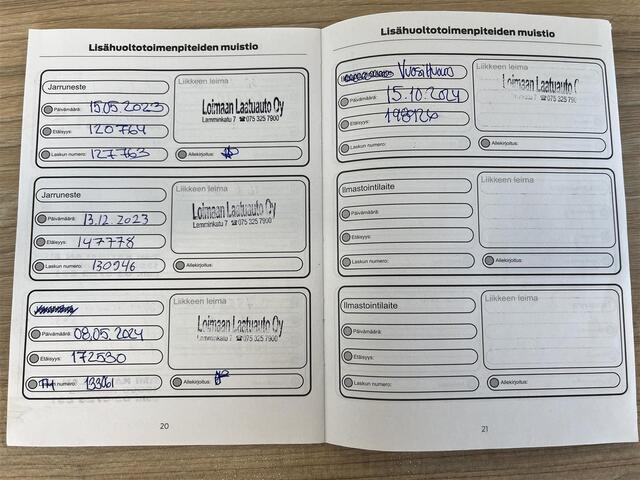 Lisähuoltotoimenpiteiden muistio
Jarruneste
Päivämäärä: 15.05.2023
Etäisyys: 120764
Laskun numero: 127763
Liikkeen leima
Loimaan Laatuauto Oy
Lamminkatu 7 ☎075 325 7900
Allekirjoitus:
Jarruneste
Päivämäärä: 13.12.2023
Etäisyys: 147778
Laskun numero: 130946
Liikkeen leima
Loimaan Laatuauto Oy
Lamminkatu 7 ☎075 325 7900
Allekirjoitus:
Päivämäärä: 08.05.2024
Etäisyys: 172530
TM numero: 133061
Liikkeen leima
Loimaan Laatuauto Oy
Lamminkatu 7 ☎075 325 7900
Allekirjoitus:
20
Lisähuoltotoimenpiteiden muistio
Vuosihuolto
Päivämäärä: 15.10.2024
Etäisyys: 198126
Laskun numero:
Liikkeen leima
Loimaan Laatuauto
Lamminkatu 7 ☎075 325
Allekirjoitus:
Ilmastointilaite
Päivämäärä:
Etäisyys:
Laskun numero:
Liikkeen leima
Allekirjoitus:
Ilmastointilaite
Päivämäärä:
Etäisyys:
Laskun numero:
Liikkeen leima
Allekirjoitus:
21